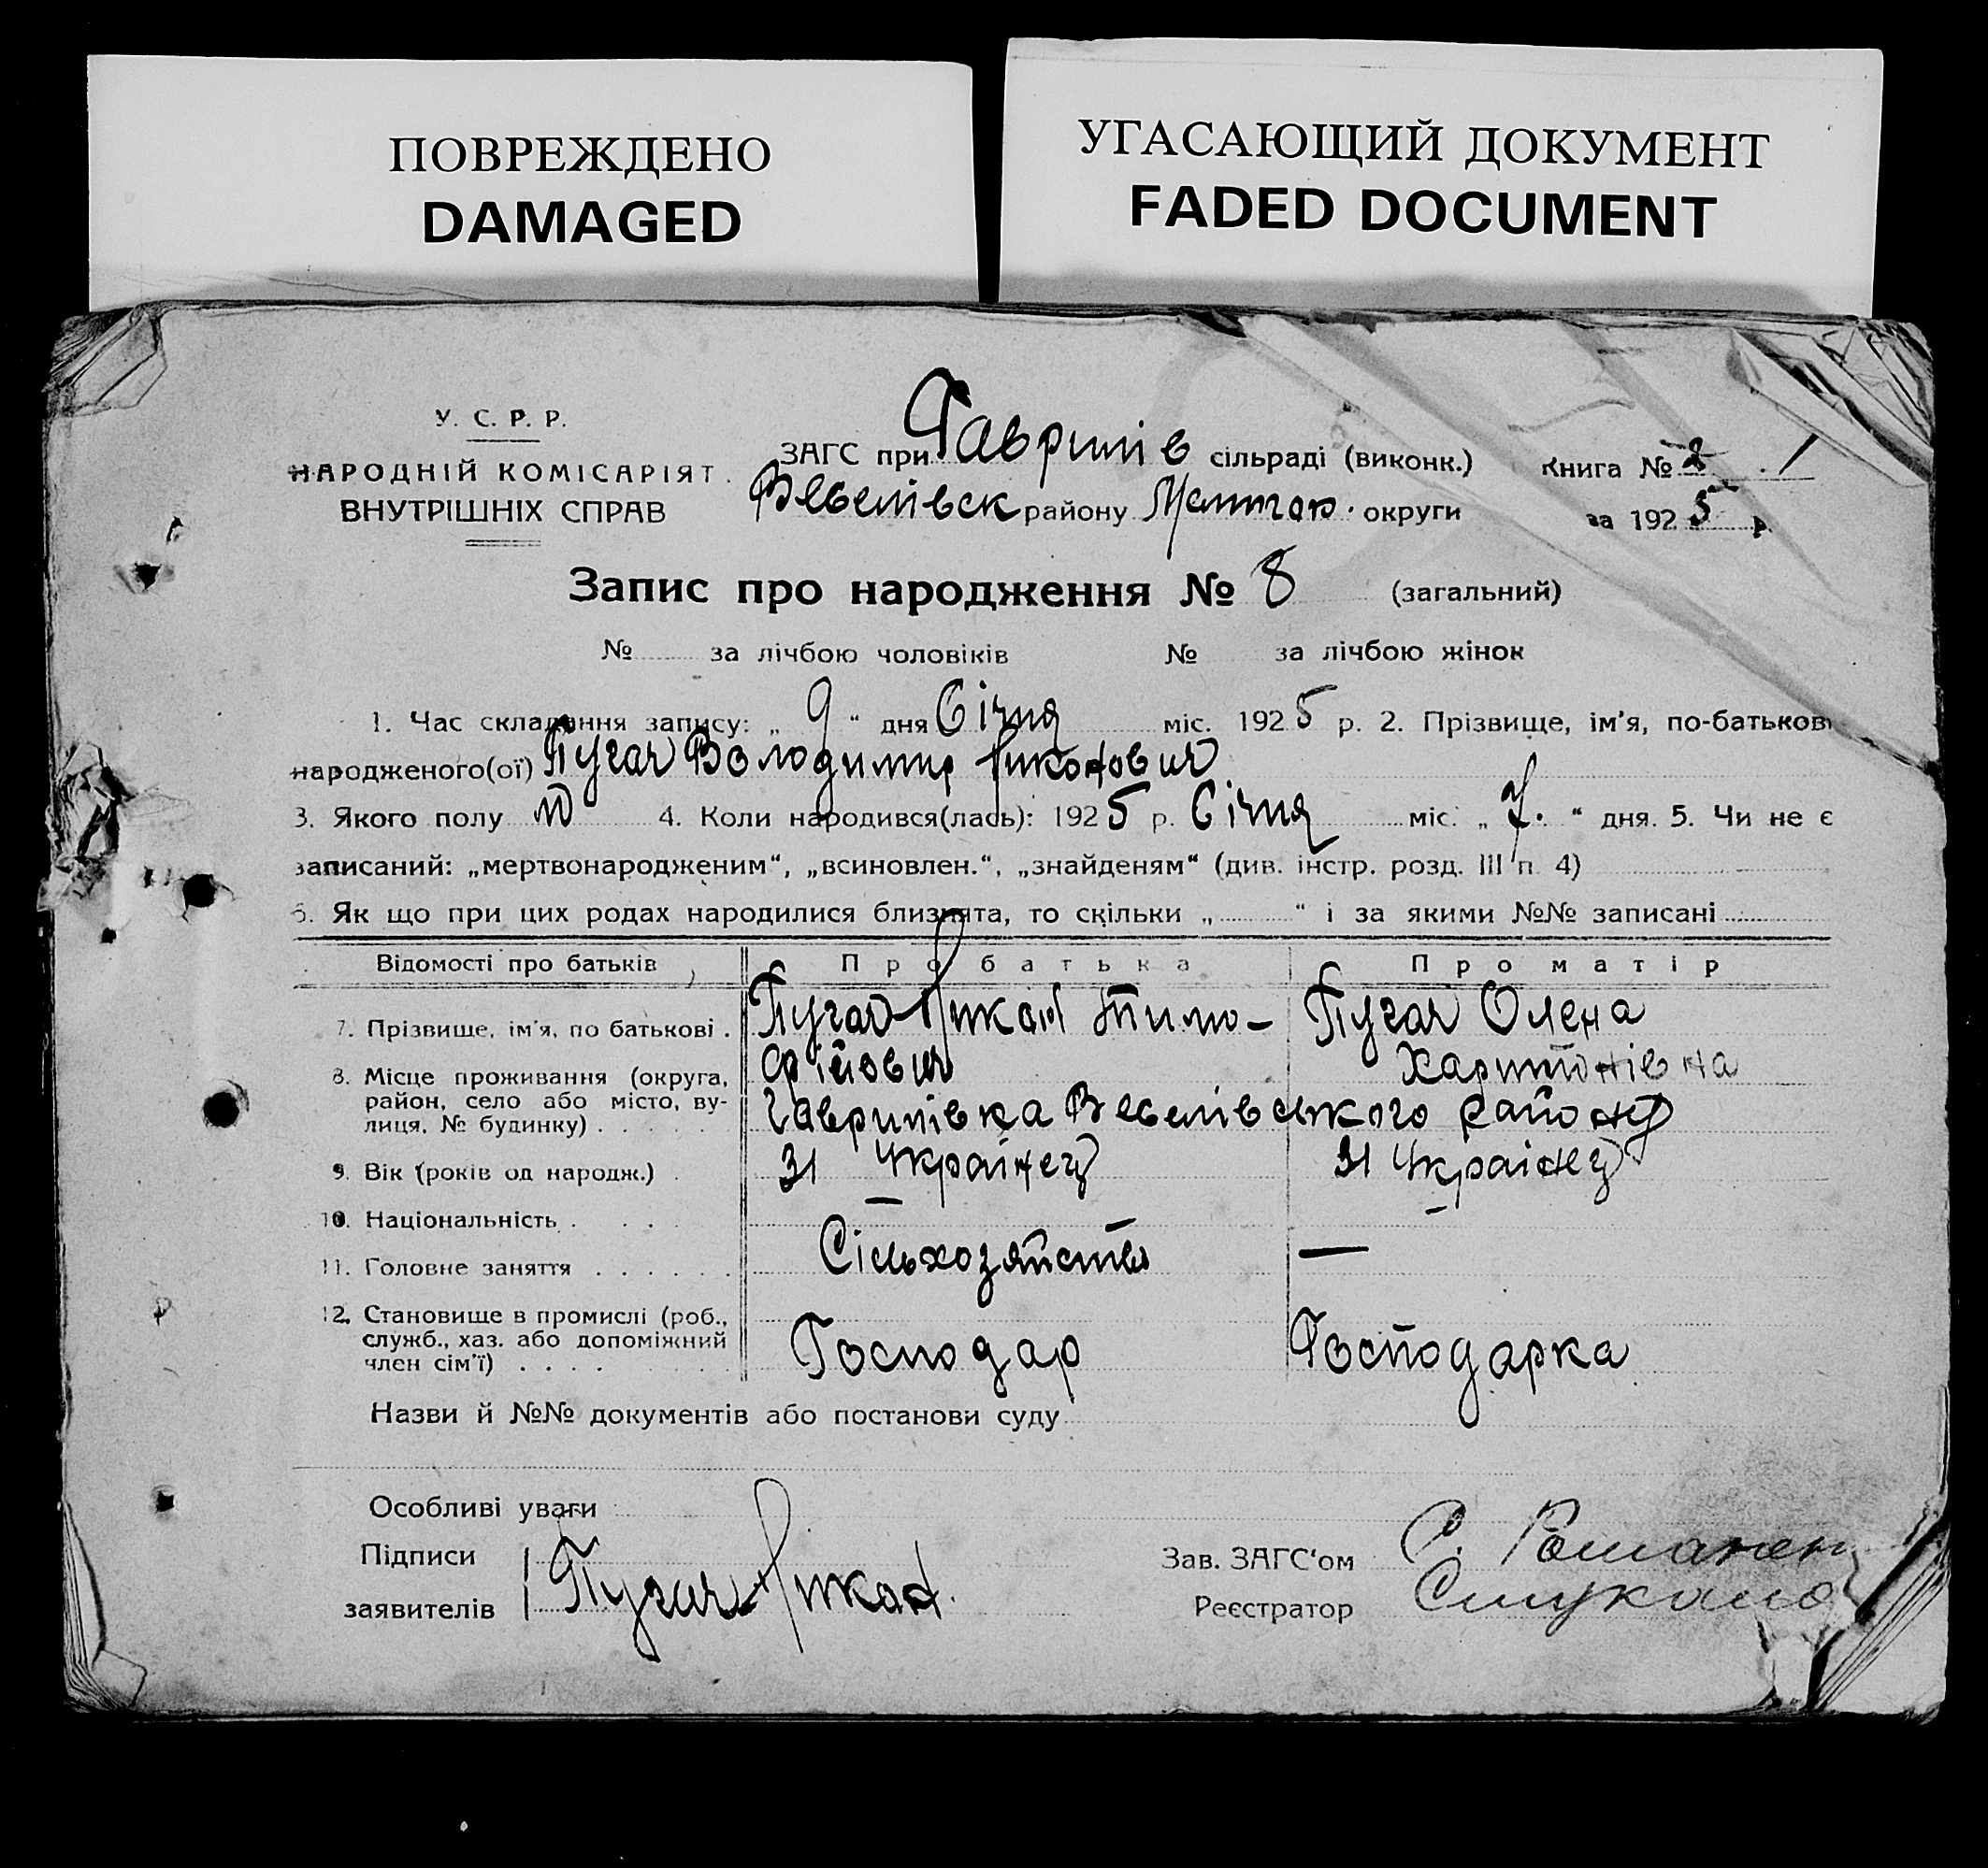 ПОВРЕЖДЕНО
DAMAGED
УГАСАЮЩИЙ ДОКУМЕНТ
FADED DOCUMENT
У. С. Р. Р.
НАРОДНІЙ КОМІСАРІЯТ
ВНУТРІШНІХ СПРАВ
ЗАГС при Гаврилів сільраді (виконк.)
Веселівск району округи
Книга № 1
за 1925 р.
Запис про народження № 8 (загальний)
№ за лічбою чоловіків № за лічбою жінок
1. Час складання запису: „ 9 “ дня Січня міс. 1925 р. 2. Прізвище, ім’я, по-батькові
народженого(ої) Пугач Володимир Никонович
3. Якого полу 4. Коли народився(лась): 1925 р. Січня міс. „ 7. “ дня. 5. Чи не є
записаний: „мертвонародженим“, „всиновлен.“, „знайденям“ (див. інстр. розд. III п. 4)
6. Як що при цих родах народилися близнята, то скільки „ “ і за якими №№ записані
Відомості про батьків Про батька Про матір
7. Прізвище, ім’я, по батькові . Пугач Никон Тимо- Пугач Олена
фійович Харитонівна
8. Місце проживання (округа,
район, село або місто, ву-
лиця, № будинку) . . . . . Гаврилівка Веселівського району
9. Вік (років од народж.) . 31 Украінец 31 Украінец
10. Національність . . . . — —
11. Головне заняття . . . . . . Сільхозяйство —
12. Становище в промислі (роб.,
служб., хаз. або допоміжний
член сім’ї) . . . . Господар Господарка
Назви й №№ документів або постанови суду
Особливі уваги
Підписи
заявителів Пугач Никон.
Зав. ЗАГС‘ом
Реєстратор